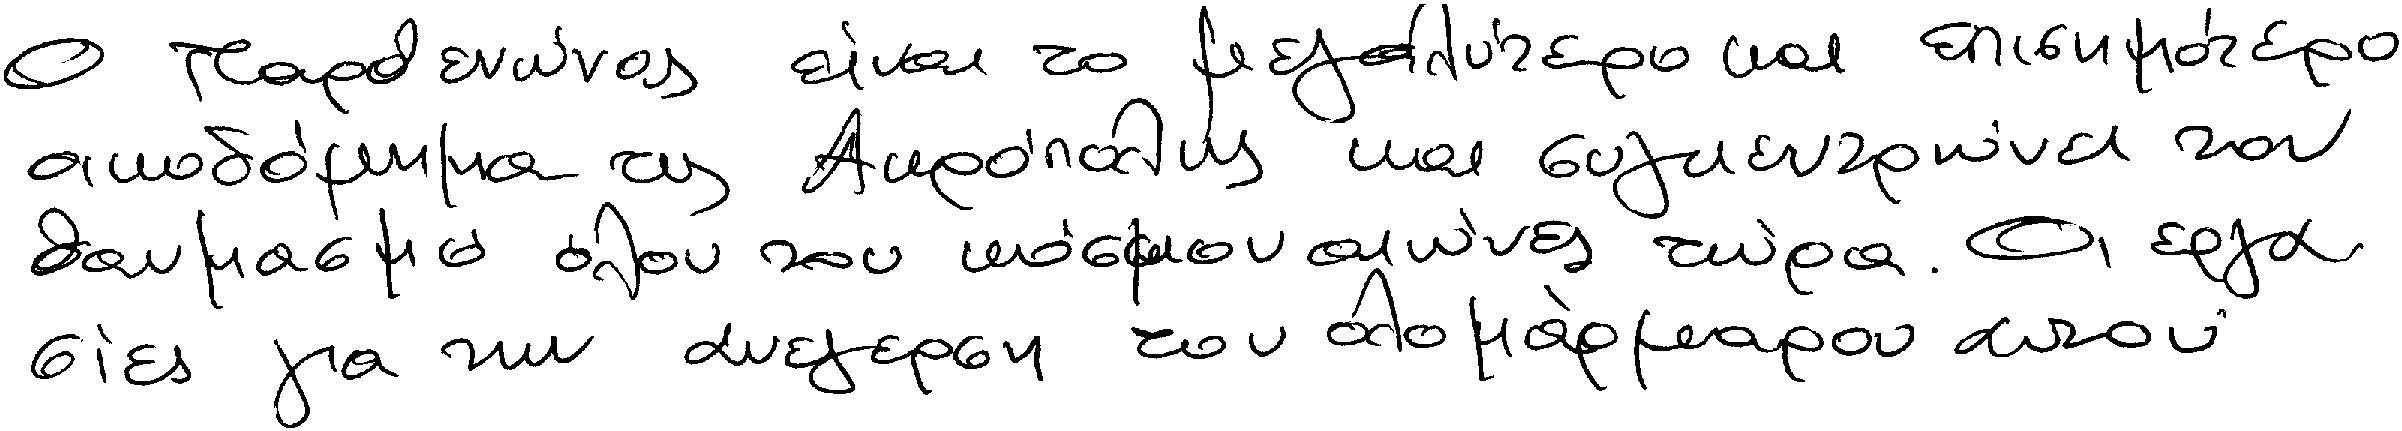 Ο Παρθενώνας είναι το μεγαλύτερο και επισημότερο
οικοδόμημα της Ακρόπολης και συγκεντρώνει τον
θαυμασμό όλου του κόσμου αιώνες τώρα. Οι εργα
σίες για την ανεγερση του ολομάρμαρου αυτού